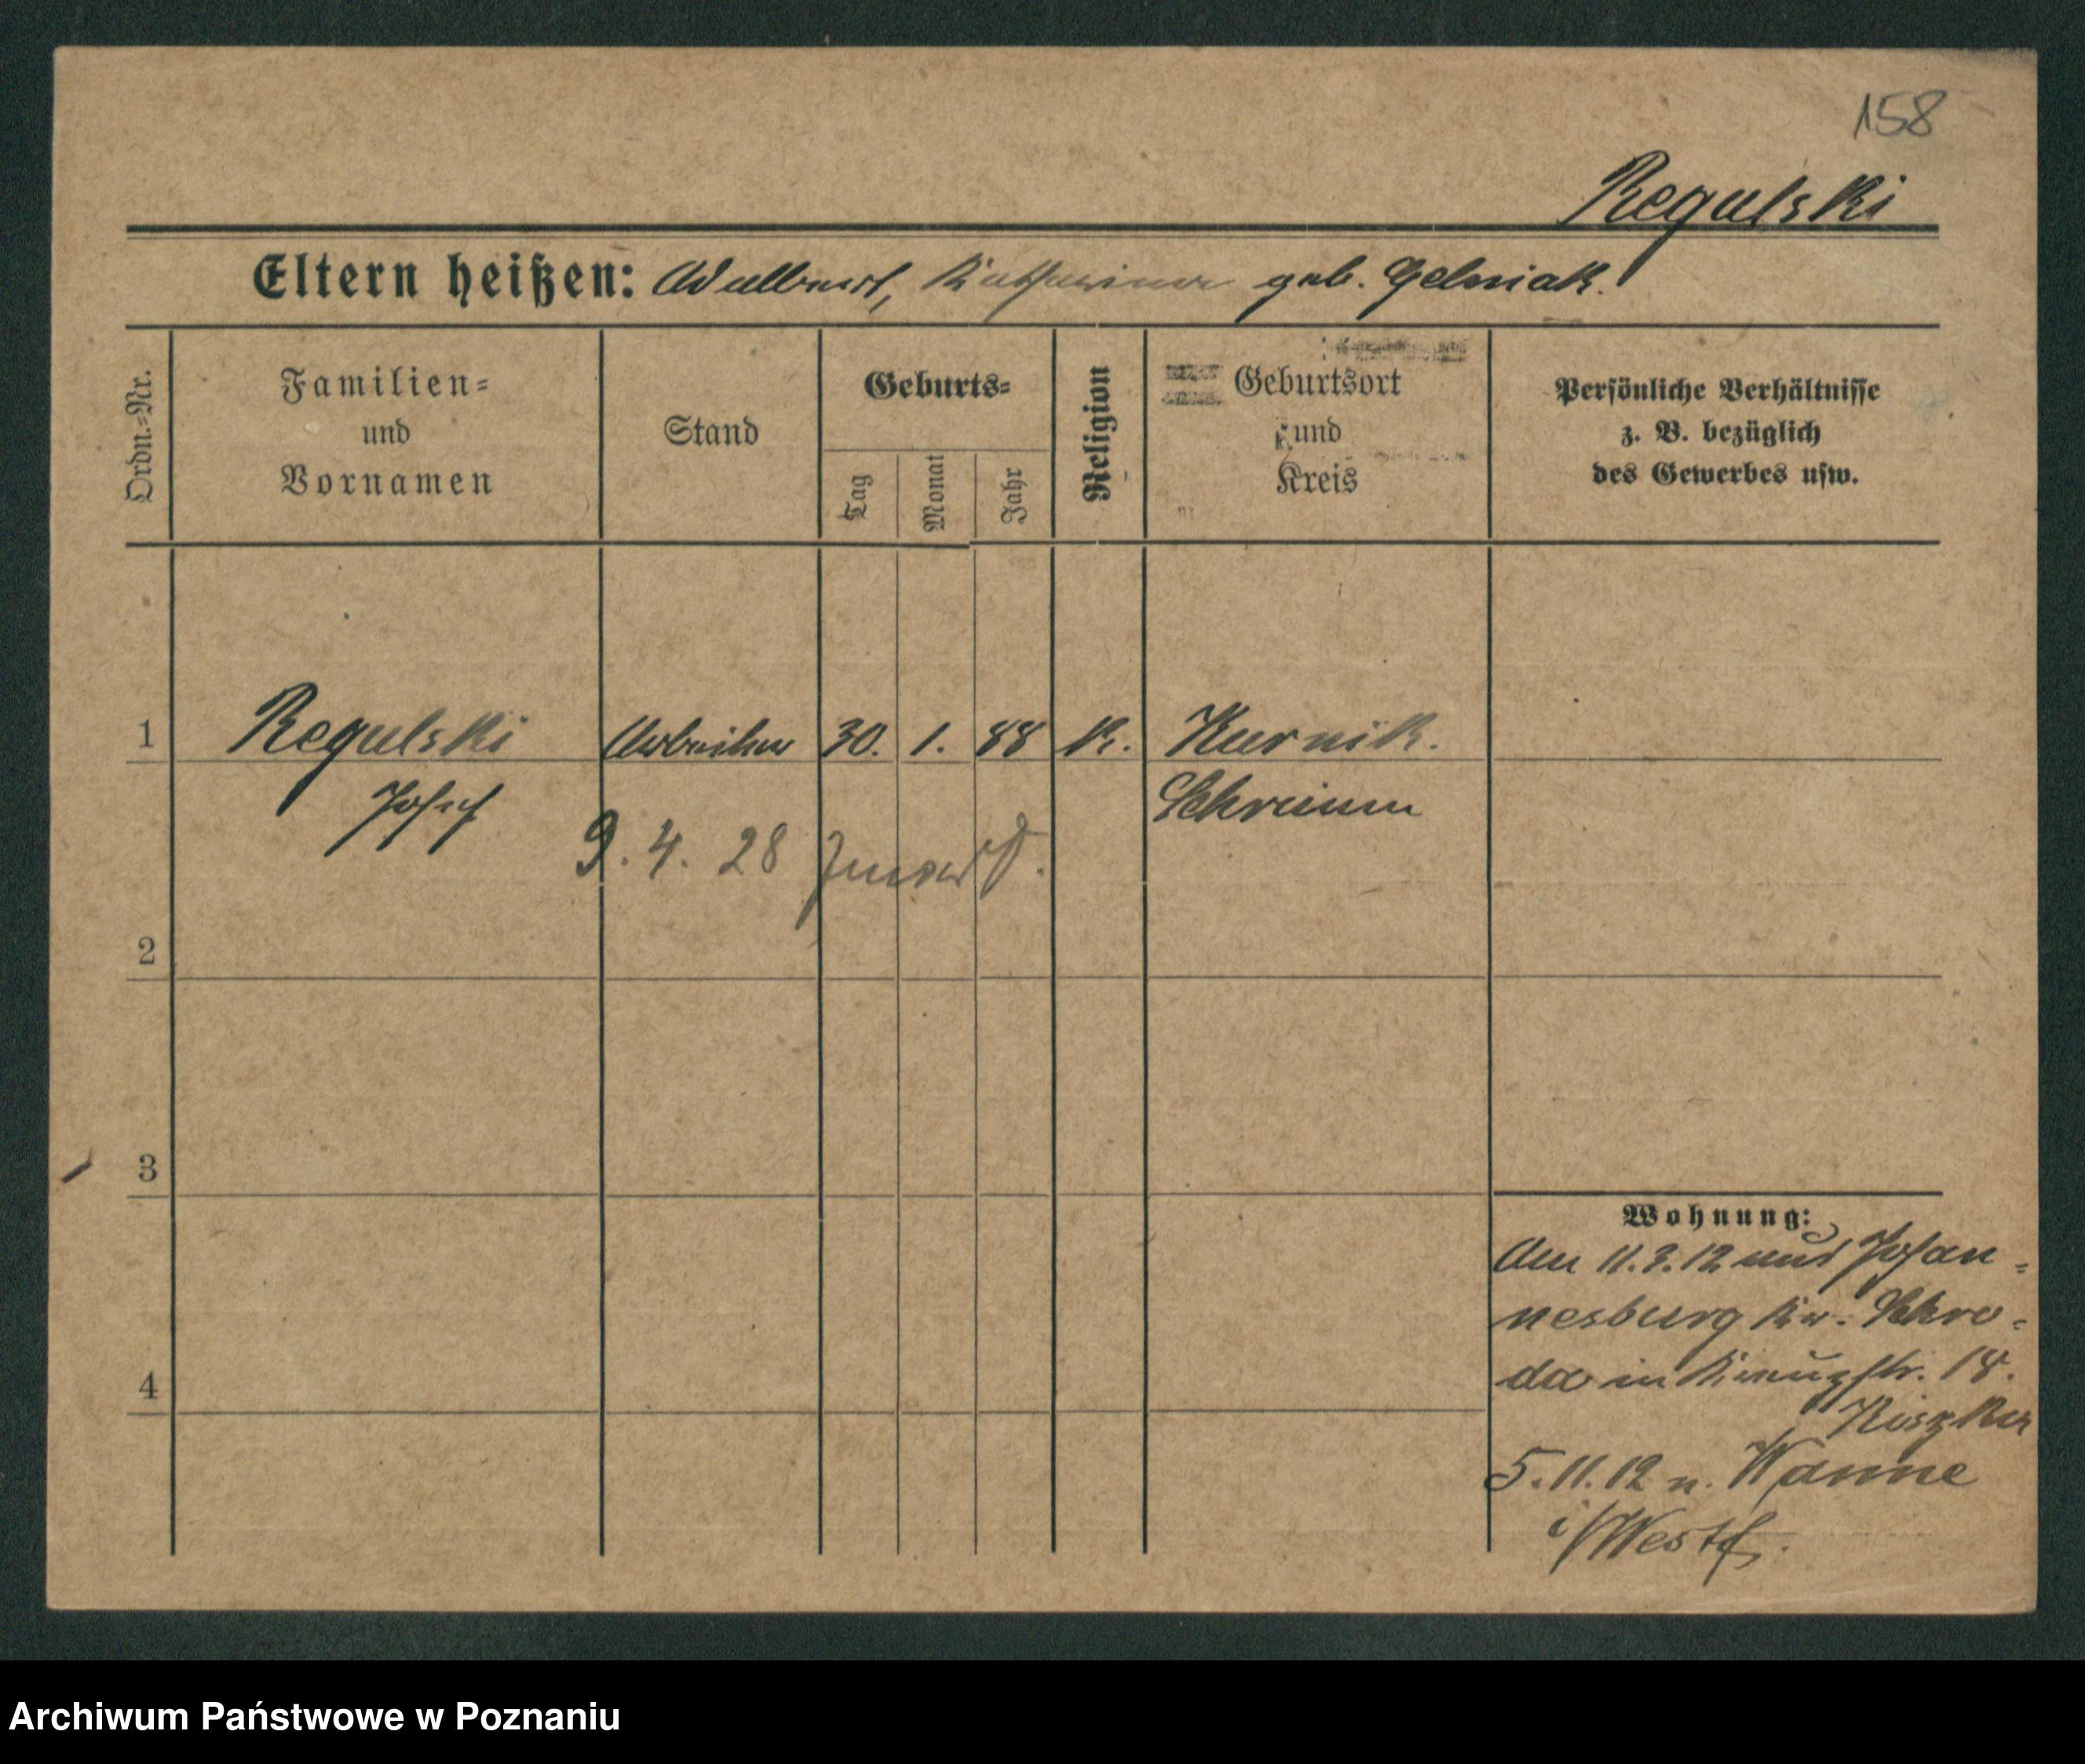 158
Regulski
Eltern heißen: Adalbert, Katharina geb. Gelniak.
Ordn.=Nr.
Familien=
und
Vornamen
Stand
Geburts=
Tag
Monat
Jahr
Religion
Geburtsort
und
Kreis
Persönliche Verhältnisse
z. B. bezüglich
des Gewerbes usw.
1 Regulski Arbeiter 30. 1. 88 K. Kurnik.
Josef Schrimm
9. 4. 28
2
3
4
Wohnung:
Am 11.3.12 aus Johan=
nesburg Kr. Schro=
da in Kreuzstr. 18.
5.11.12 n. Wanne
i/Westf.
Archiwum Państwowe w Poznaniu